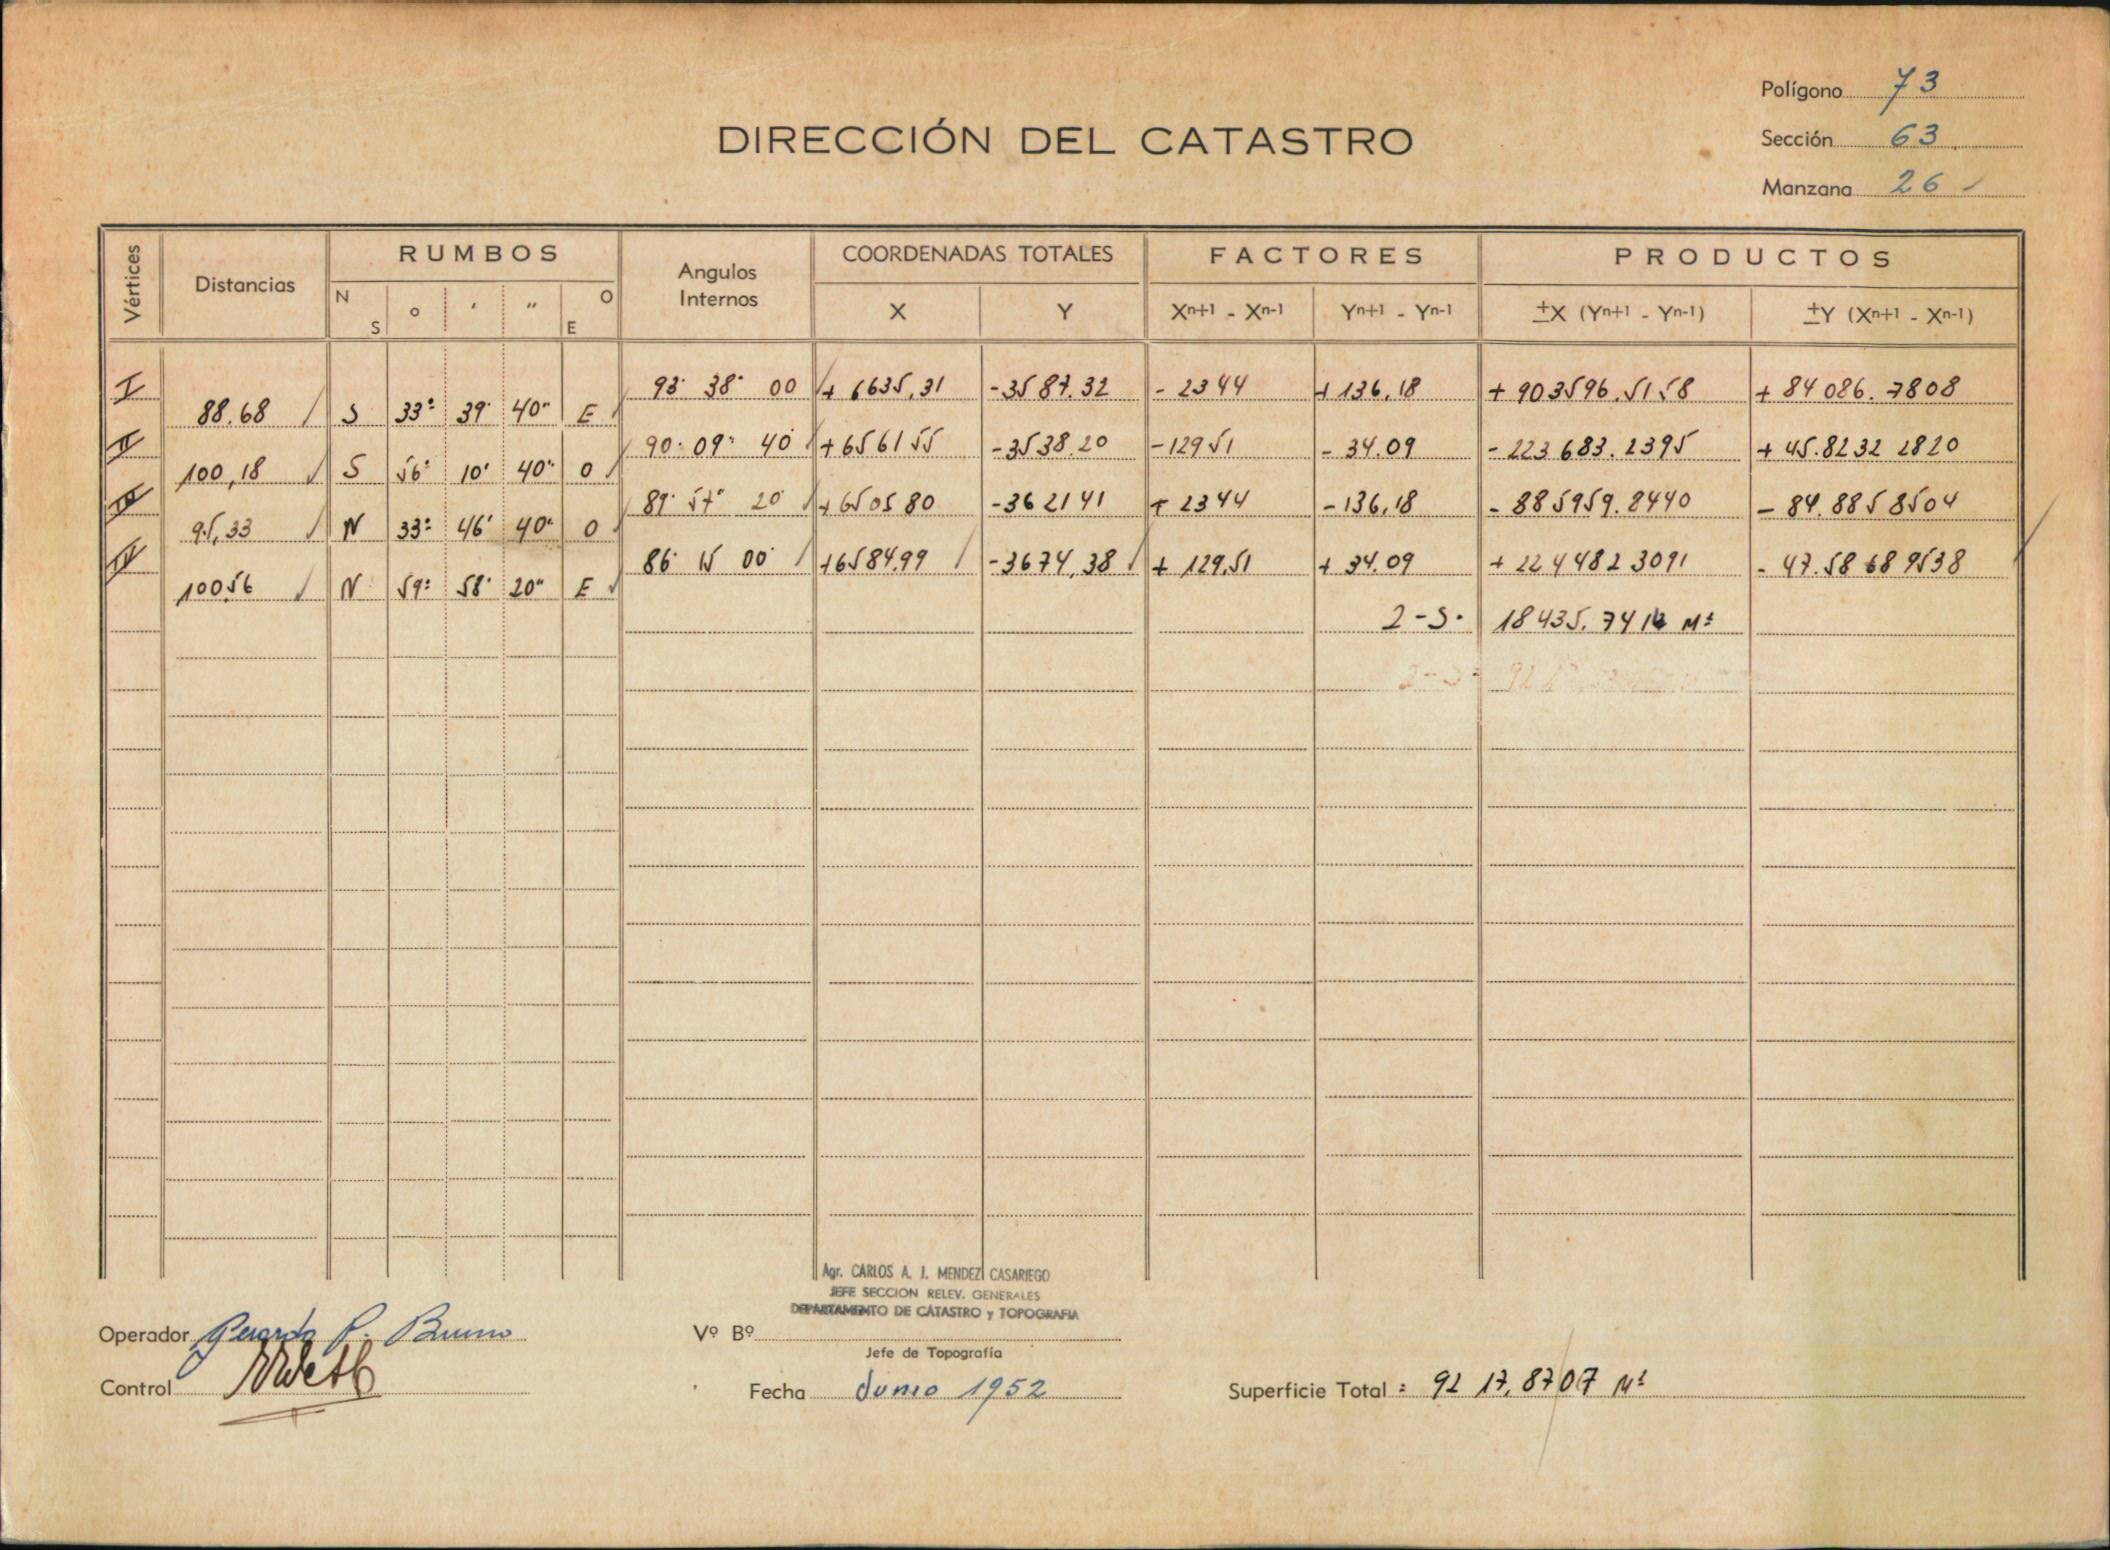 Polígono 73
DIRECCIÓN DEL CATASTRO
Sección 63
Manzana 26
Vértices Distancias RUMBOS Angulos Internos COORDENADAS TOTALES FACTORES PRODUCTOS
N S ° ′ ″ O E X Y Xⁿ⁺¹ - Xⁿ⁻¹ Yⁿ⁺¹ - Yⁿ⁻¹ ±X (Yⁿ⁺¹ - Yⁿ⁻¹) ±Y (Xⁿ⁺¹ - Xⁿ⁻¹)
I 93° 38' 00 + 6635,31 -3587.32 - 2344 + 136,18 + 903596.5158 + 84086.7808
88.68 S 33° 39' 40" E
II 90° 09' 40 +656155 -3538.20 -12951 - 34.09 - 223683.2395 + 45.8232 2820
100,18 S 56° 10' 40" O
III 89° 57' 20 +650580 -362141 + 2344 - 136,18 - 885959.8440 - 84.8858504
95,33 N 33° 46' 40" O
IV 86° 15 00 +6584.99 -3674,38 + 129,51 + 34.09 + 2244823091 - 47.58689538
100.56 N 59° 58' 20" E
2-S. 18435.7414 M²
Agr. CARLOS A. J. MENDEZ CASARIEGO
JEFE SECCION RELEV. GENERALES
DEPARTAMENTO DE CATASTRO y TOPOGRAFIA
Operador Gerardo P. Bruno Vº Bº
Jefe de Topografía
Control Fecha Junio 1952 Superficie Total : 9217,8707 M²